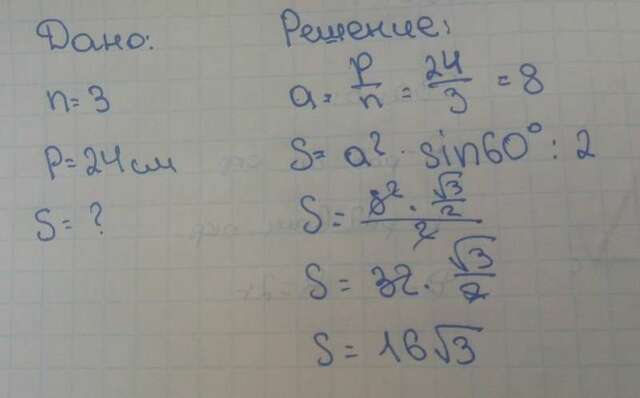 Дано:
n=3
P=24см
S=?
Решение:
a = P/n = 24/3 = 8
S = a² · sin60° : 2
S = (8² · √3/2)/2
S = 32 · √3/2
S = 16√3